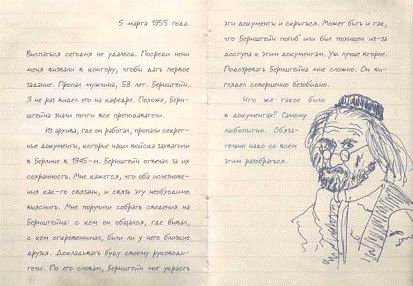 5 марта 1955 года.
Выспаться сегодня не удалось. Посреди ночи
меня вызвали в контору, чтобы дать первое
задание. Пропал мужчина, 58 лет. Бернштейн.
Я не раз видел его на кафедре. Похоже, Берн-
штейна знали почти все преподаватели.
Из архива, где он работал, пропали секрет-
ные документы, которые наши войска захватили
в Берлине в 1945-м. Бернштейн отвечал за их
сохранность. Мне кажется, что оба исчезнове-
ния как-то связаны, и связь эту необходимо
выяснить. Мне поручили собрать сведения на
Бернштейна: с кем он общался, где бывал,
с кем откровенничал, были ли у него близкие
друзья. Докладывать буду своему руководи-
телю. По его словам, Бернштейн мог украсть
эти документы и скрыться. Может быть и так,
что Бернштейн погиб или был похищен из-за
доступа к этим документам. Уж лучше второе.
Подозревать Бернштейна мне сложно. Он вы-
глядел совершенно безобидно.
Что же такое было
в документах? Самому
любопытно. Обяза-
тельно надо со всем
этим разобраться.